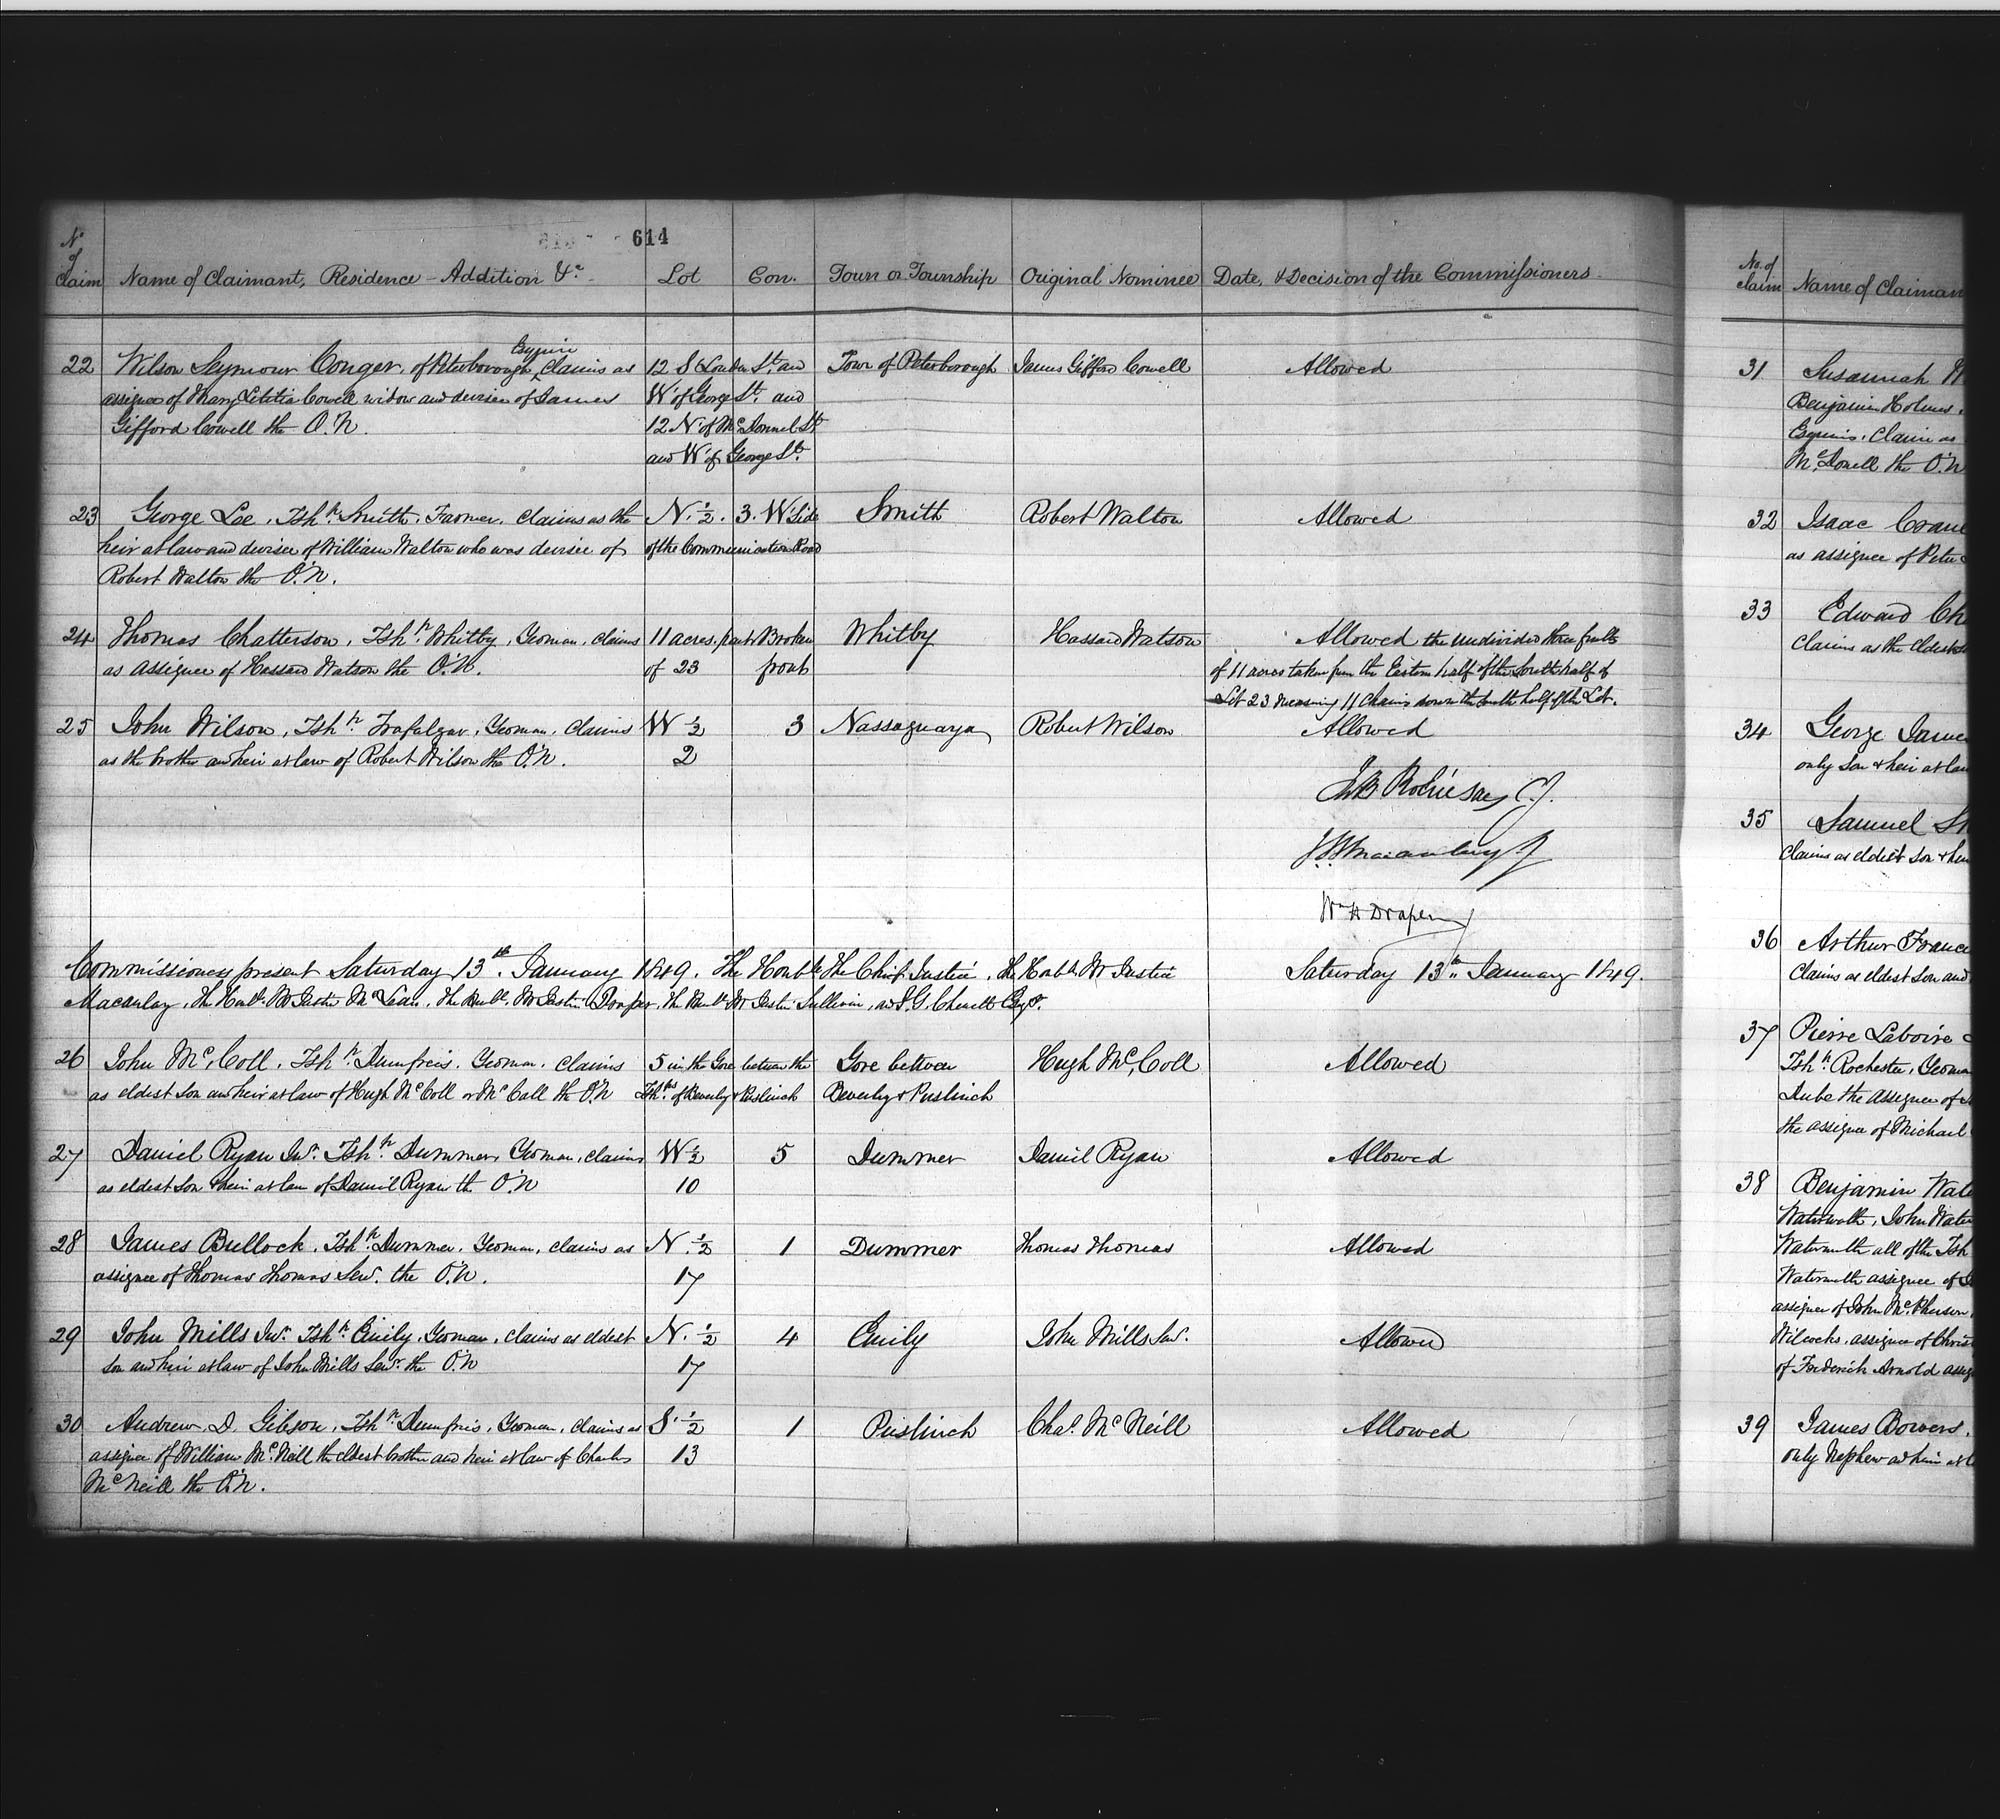 614
No of Claim Name of Claimant, Residence - Addition &c - Lot Con. Town or Township Original Nominee Date, & Decision of the Commissioners -
22 Wilson Seymour Conger, of Peterborough, Esquire Claims as 12 S London St. and Town of Peterborough James Gifford Cowell Allowed
assignee of Mary Letitia Cowell widow and devisee of James W of George St. and
Gifford Cowell the O.N. 12 N of McDonnel St.
and W of George St.
23 George Lee, Tshp. Smith, Farmer, claims as the N. 1/2. 3. W Side Smith Robert Walton Allowed
heir at law and devisee of William Walton who was devisee of of the Communication Road
Robert Walton the O.N.
24 Thomas Chatterson, Tshp. Whitby, Yeoman, claims 11 acres, part Broken Whitby Hassard Watson Allowed the undivided three fourths
as assignee of Hassard Watson the O.N. of 23 front of 11 acres taken from the Eastern half of the South half of
Lot 23 measuring 11 Chains down the south half of the Lot.
25 John Wilson, Tshp. Trafalgar, Yeoman, claims W 1/2 3 Nassagaweya Robert Wilson Allowed
as the brother and heir at law of Robert Wilson the O.N. 2
Jno B Robinson, C.J.
J.B. Macaulay J
Wm H Draper J
Commissioners present Saturday 13th. January 1849. The Honble The Chief Justice, the Honble Mr Justice Saturday 13th January 1849.
Macaulay, the Honble. Mr Justice McLean, the Honble. Mr Justice Draper, the Honble. Mr Justice Sullivan, and Chewett Esqr.
26 John McColl, Tshp. Dumfries, Yeoman, claims 5 in the Gore between the Gore between Hugh McColl Allowed
as eldest son and heir at law of Hugh McColl or McCall the O.N Tshps. of Beverly & Puslinch Beverley & Puslinch
27 Daniel Ryan Junr. Tshp. Dummer, Yeoman, claims W 1/2 5 Dummer Daniel Ryan Allowed
as eldest son & heir at law of Daniel Ryan the O.N 10
28 James Bullock, Tshp. Dummer, Yeoman, claims as N. 1/2 1 Dummer Thomas Thomas Allowed
assignee of Thomas Thomas Senr. the O.N. 17
29 John Mills Junr. Tshp. Emily, Yeoman, claims as eldest N. 1/2 4 Emily John Mills Senr. Allowed
son and heir at law of John Mills Senr. the O.N 17
30 Andrew D. Gibson, Tshp. Dumfries, Yeoman, claims as S. 1/2 1 Puslinch Chas. McNeill Allowed
assignee of William McNeill the eldest brother and heir at law of Charles 13
McNeill the O.N.
No. of claim Name of Claiman
31 Susannah
Benjamin Holmes,
Esquires, Claim as
McDonell the O.N
32 Isaac Crane
as assignee of Peter
33 Edward Ch
Claims as the eldest so
34 George James
only son & heir at law
35 Samuel
Claims as eldest son & heir
36 Arthur France
Claims as eldest son and
37 Pierre Laboire
Tshp. Rochester, Yeoman
Dube the assignee of
the assignee of Michael
38 Benjamin Wate
Watersworth, John Water
all of the Tsh
assignee of
assignee of John McPherson,
Wilcocks, assignee of Chris
of Frederick Arnold assig
39 James Bowers,
only Nephew and heir at